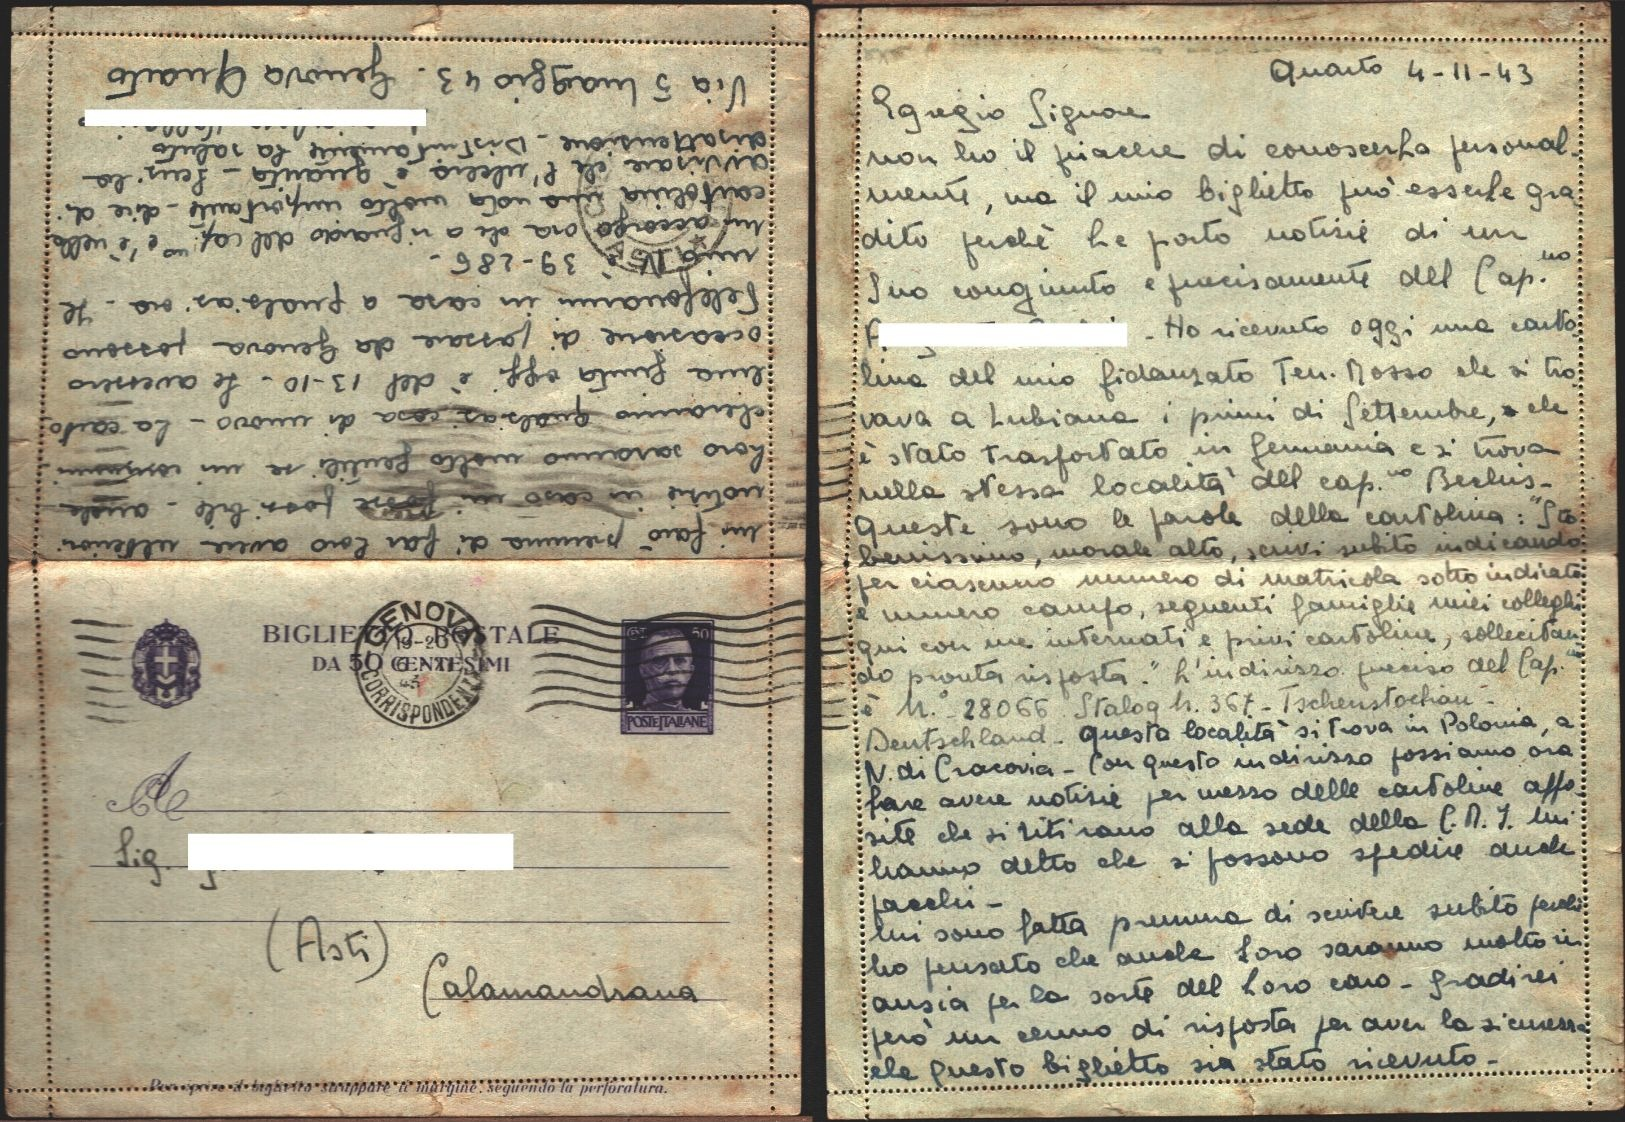 Quarto 4-11-43
Egregio Signore
non ho il piacere di conoscerLa personal-
mente, ma il mio biglietto può esserLe gra
dito perchè Le porto notizie di un
Suo congiunto e precisamente del Cap.no
- Ho ricevuto oggi una carto
lina del mio fidanzato Ten. Mosso che si tro
vava a Lubiana i primi di Settembre, che
è stato trasportato in Germania e si trova
nella stessa località del cap.no Bechis -
Queste sono le parole della cartolina: "Sto
benissimo, morale alto, scrivi subito indicando
per ciascuno numero di matricola sotto indicato
e numero campo, seguenti famiglie miei colleghi
qui con me internati e privi cartoline, sollecitan
do pronta risposta." L'indirizzo preciso del Cap.no
è N.° 28066 Stalag N. 367 - Tschenstochau -
Deutschland - Questa località si trova in Polonia, a
N. di Cracovia - Con questo indirizzo possiamo ora
fare avere notizie per mezzo delle cartoline appo
site che si ritirano alla sede della C.R.I. Mi
hanno detto che si possono spedire anche
pacchi -
Mi sono fatta premura di scrivere subito perchè
ho pensato che anche Loro saranno molto in
ansia per la sorte del Loro caro - Gradirei
però un cenno di risposta per aver la sicurezza
che questo biglietto sia stato ricevuto -
Mi farò premura di far Loro avere ulteriori
notizie in caso mi fosse possibile - anche
Loro saranno molto gentili se mi comuni-
cheranno qualsiasi cosa di nuovo - La carto
lina giunta oggi è del 13-10 - Se avessero
occasione di passare da Genova possono
telefonarmi in casa a qualsiasi ora - Il
mio N. è 39-286 -
M'accorgo ora che a riguardo del cap.no c'è nella
cartolina una nota molto importante - dice di
avvisare che l'ulcera è guarita - Scusi la
disattenzione - Distintamente La saluto
Via 5 Maggio 43 - Genova Quarto
BIGLIETTO POSTALE
DA 50 CENTESIMI
GENOVA
19-20
CORRISPONDENZE
CT 50
POSTE ITALIANE
A
Sig.
(Asti)
Calamandrana
Per aprire il biglietto strappare il margine, seguendo la perforatura.